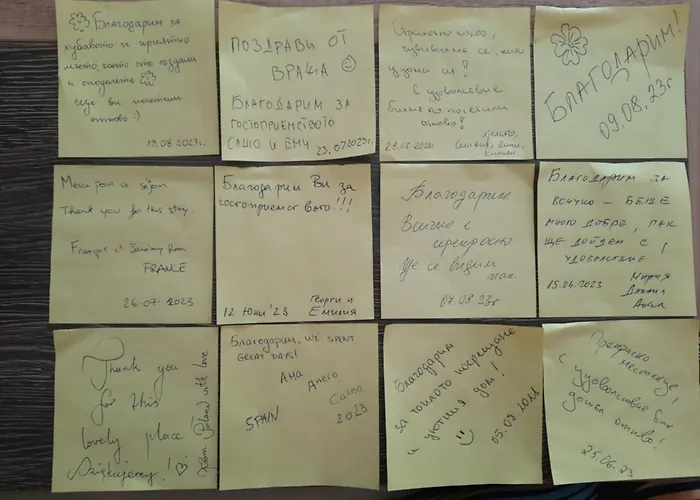 Благодарим за
хубавото и приятно
място, което сте създали
и споделяте
Ще ви посетим
отново :)
13.08.2023г.
ПОЗДРАВИ ОТ
ВРАЦА
БЛАГОДАРИМ ЗА
ГОСТОПРИЕМСТВОТО
САШО И ЕМИ
23.07.2023г.
Страхотно място,
чувстваме се, като
у дома си!
С удоволствие
бихме го посетили
отново!
2023г.
БЛАГОДАРИМ!
09.08.23г.
Merci pour ce séjour
Thank you for this stay
François et
FRANCE
26-07-2023
Благодарим Ви за
гостоприемството!!!
12 Юни '23
Георги и
Емилия
Благодарим.
Всичко е
прекрасно
Ще се видим
пак.
07.08.23г
БЛАГОДАРИМ ЗА
ВСИЧКО – БЕШЕ
МНОГО ДОБРЕ, ПАК
ЩЕ ДОЙДЕМ С
УДОВОЛСТВИЕ!
15.04.2023
Мария
Thank you
for this
lovely place
Dziękujemy!
from Poland with love
Благодарим, WE SPENT
GREAT DAYS!
Ана
Диего
SPAIN
2023
Благодарим
за топлото посрещане
и уютния дом!
05.08.
Прекрасно
местенце!
С удоволствие бих
дошъл отново!
25.06.23